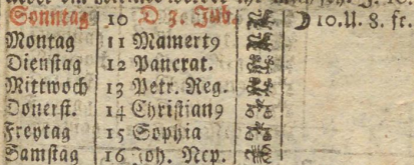 Sonntag 10 D 3. Jub. ☽ 10.U. 8. fr.
Montag 11 Mamert9
Dienstag 12 Pancrat.
Mittwoch 13 Petr. Reg.
Donerst. 14 Christian9
Freytag 15 Sophia
Samstag 16 Joh. Nep.